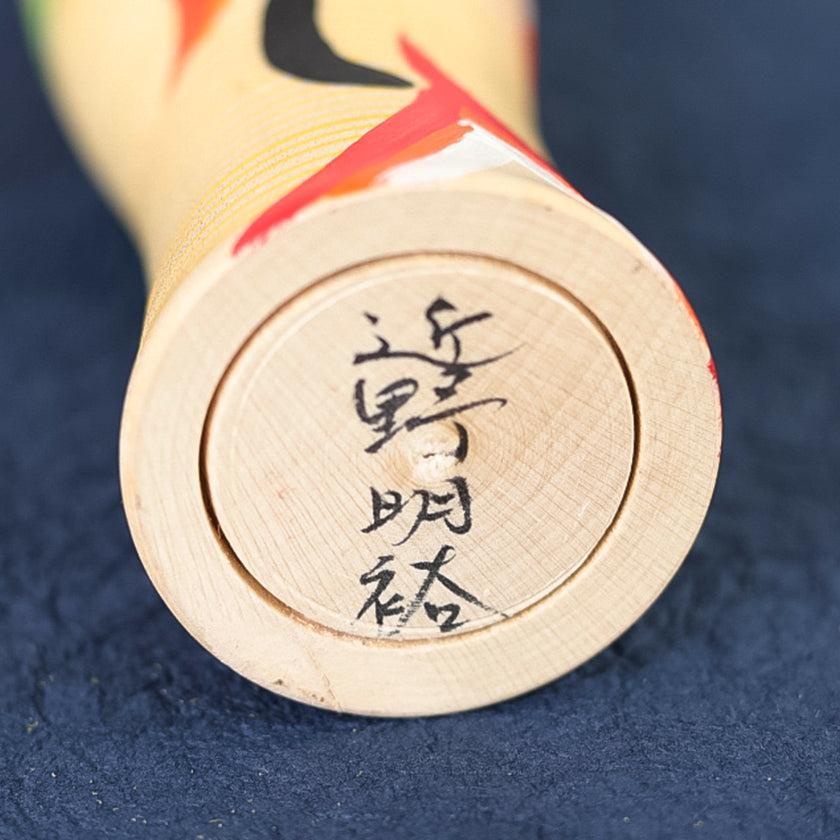 近野明裕